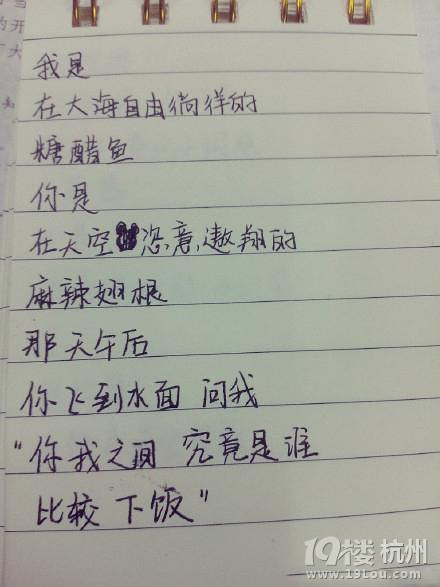 我是
在大海自由徜徉的
糖醋鱼
你是
在天空恣意遨翔的
麻辣翅根
那天午后
你飞到水面 问我
"你我之间 究竟是谁
比较 下饭"
19楼 杭州
www.19lou.com